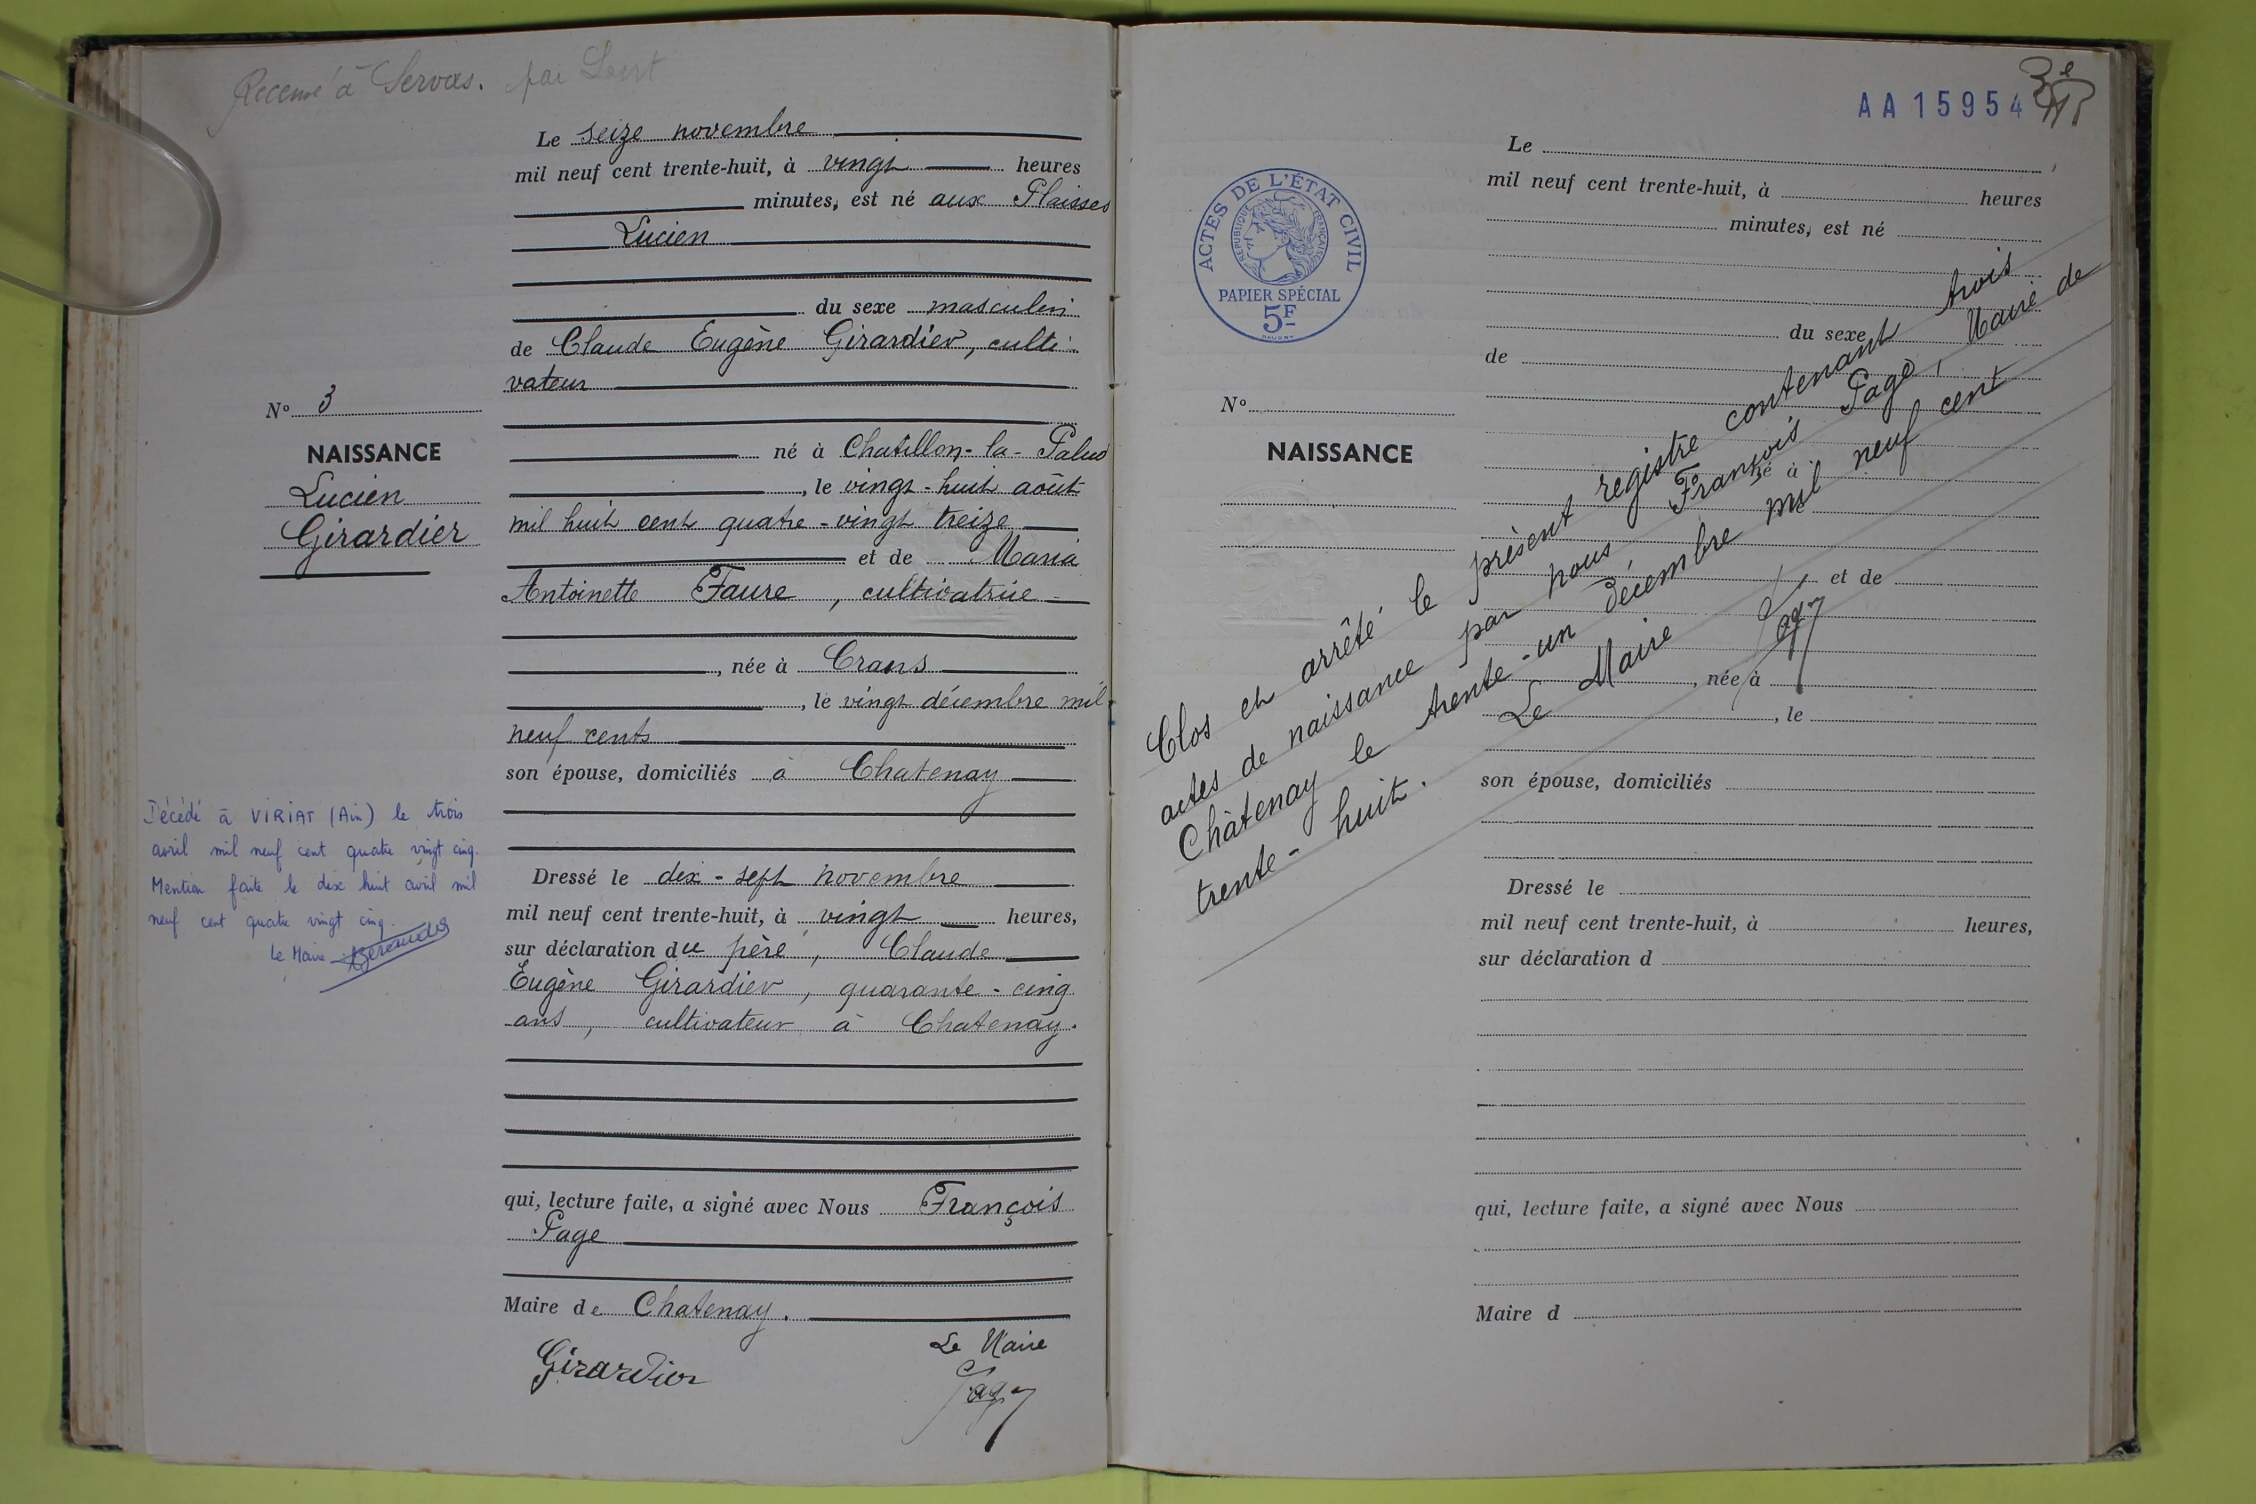 Recensé à Servas. par
Le seize novembre
mil neuf cent trente-huit, à vingt heures
minutes, est né aux Plaisses
Lucien
du sexe masculin
de Claude Eugène Girardier, culti-
vateur
né à Chatillon-la-Palud
, le vingt-huit août
mil huit cent quatre-vingt treize
et de Maria
Antoinette Faure, cultivatrice
, née à Crans
, le vingt décembre mil
neuf cents
son épouse, domiciliés à Chatenay
Dressé le dix-sept novembre
mil neuf cent trente-huit, à vingt heures,
sur déclaration du père, Claude
Eugène Girardier, quarante-cinq
ans, cultivateur à Chatenay.
qui, lecture faite, a signé avec Nous François
Page
Maire de Chatenay.
Le Maire
Girardier
Page
N° 3
NAISSANCE
Lucien
Girardier
Décédé à VIRIAT (Ain) le trois
avril mil neuf cent quatre vingt cinq.
Mention faite le dix huit avril mil
neuf cent quatre vingt cinq.
Le Maire
AA15954
ACTES DE L'ÉTAT CIVIL
RÉPUBLIQUE FRANÇAISE
PAPIER SPÉCIAL
5F
N°
NAISSANCE
Le
mil neuf cent trente-huit, à heures
minutes, est né
du sexe
de
né à
le
et de
, née à
, le
son épouse, domiciliés
Dressé le
mil neuf cent trente-huit, à heures,
sur déclaration d
qui, lecture faite, a signé avec Nous
Maire d
Clos et arrêté le présent registre contenant trois
actes de naissance par nous François Page, Maire de
Châtenay le trente-un décembre mil neuf cent
trente-huit.
Le Maire
Page